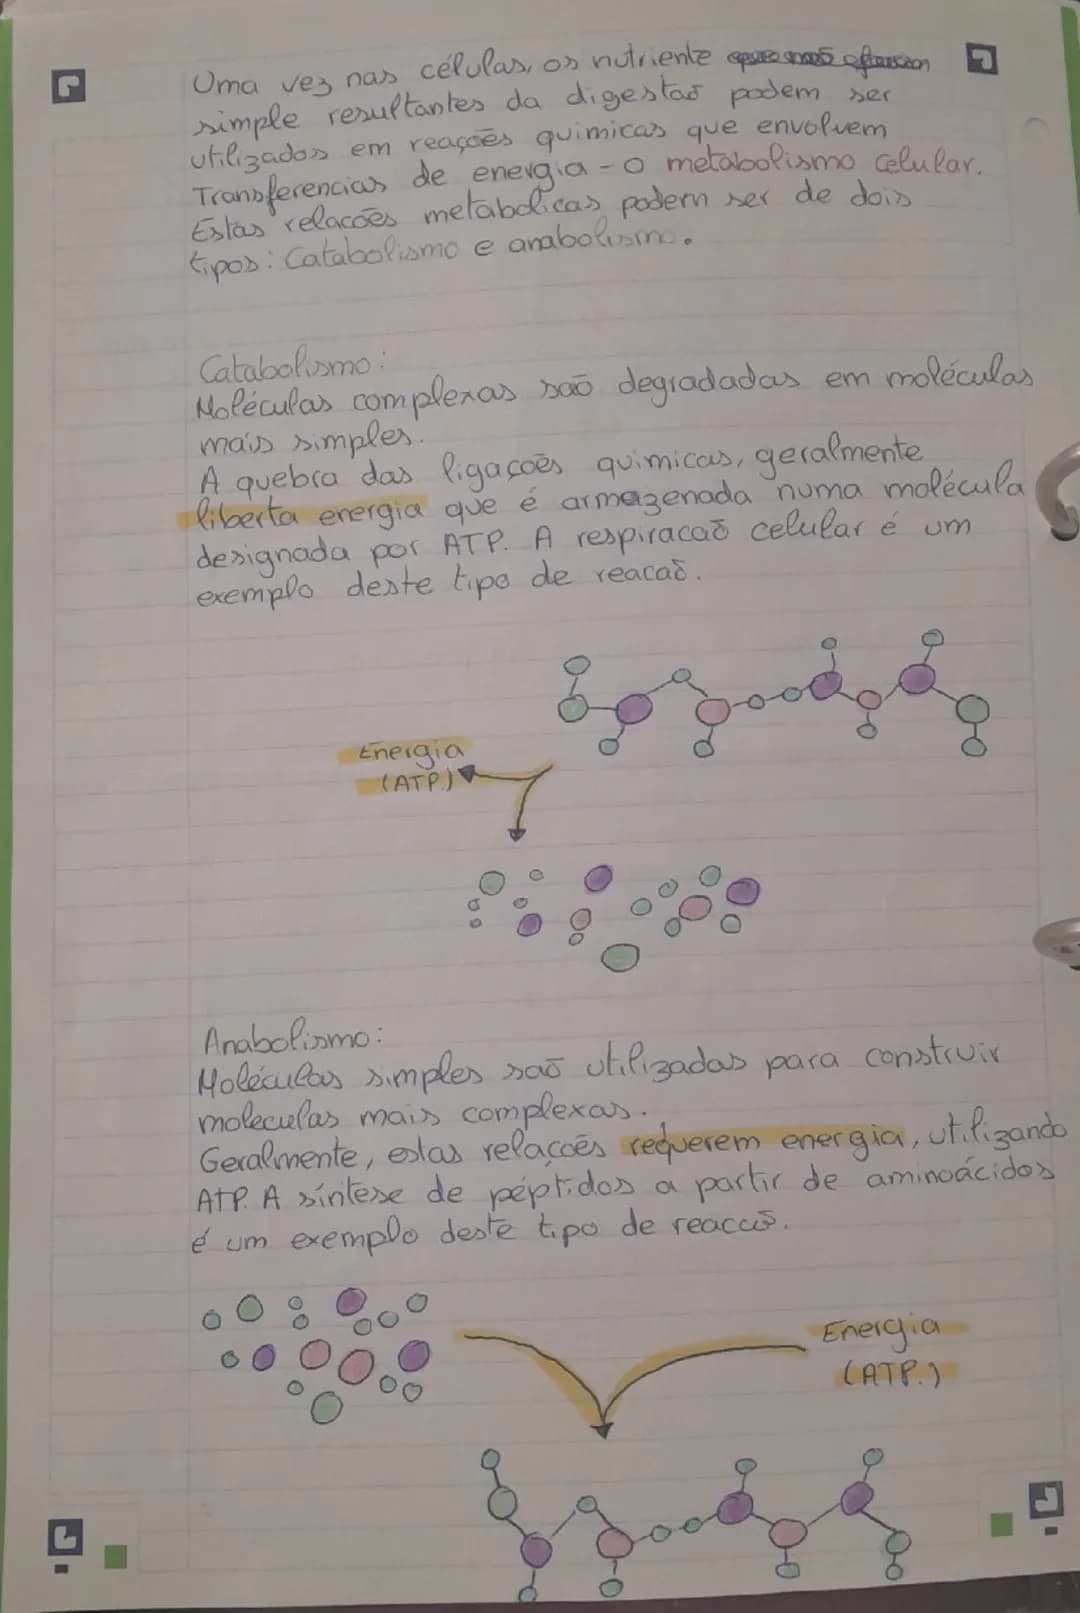 Uma vez nas células, os nutriente
simple resultantes da digestaõ podem ser
utilizados em reaçoẽs quimicas que envolvem
Transferencias de energia - o metabolismo celular.
Estas relacoẽs metabolicas podem ser de dois
tipos: Catabolismo e anabolismo.
Catabolismo:
Moléculas complexas saõ degradadas em moléculas
mais simples.
A quebra das ligaçoẽs quimicas, geralmente
liberta energia que é armazenada numa molécula
designada por ATP. A respiracaõ celular é um
exemplo deste tipo de reacaõ.
Energia
(ATP.)
Anabolismo:
Moléculas simples saõ utilizadas para construir
moleculas mais complexas.
Geralmente, estas relaçoẽs requerem energia, utilizando
ATP. A síntese de péptidos a partir de aminoácidos
é um exemplo deste tipo de
Energia
(ATP.)